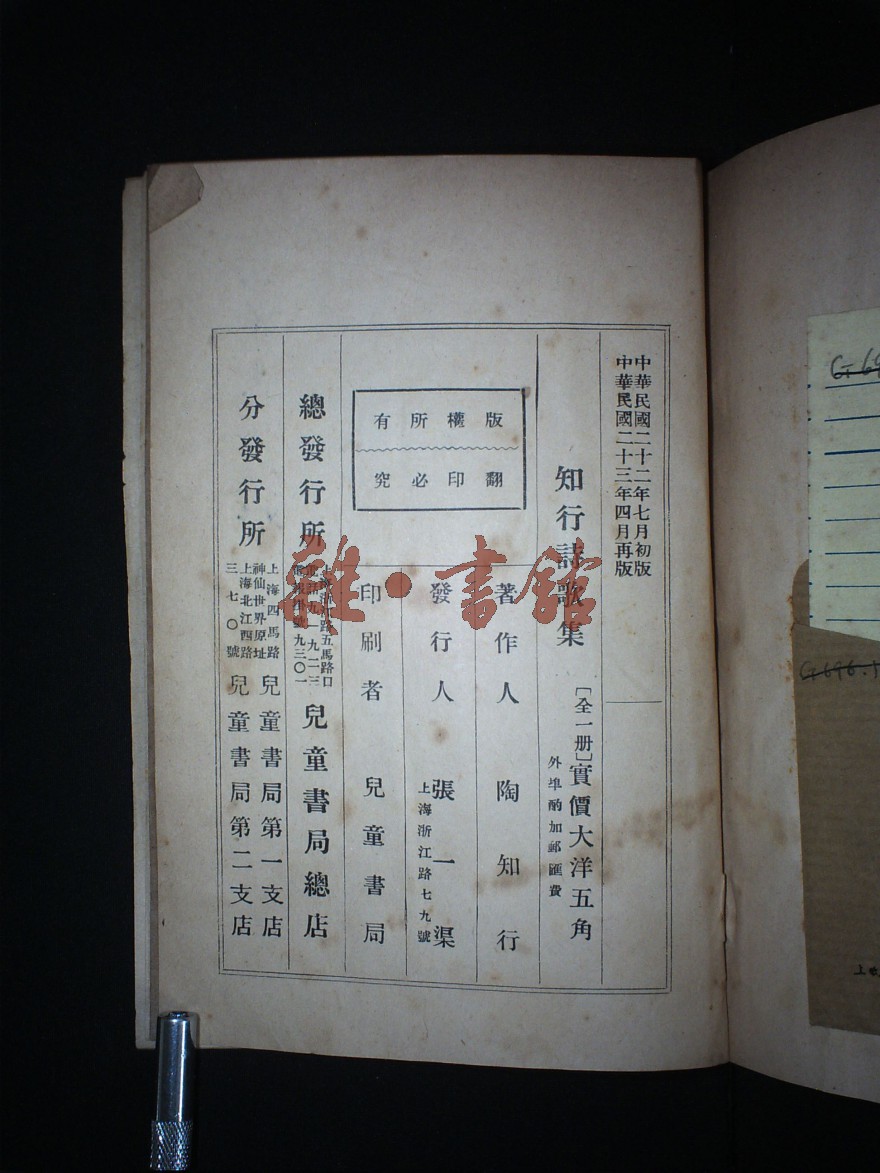 中華民國二十二年七月初版
中華民國二十三年四月再版
知行詩歌集
[全一册]實價大洋五角
外埠酌加郵匯費
著作人 陶知行
發行人 張一渠
上海浙江路七九號
版權所有
翻印必究
印刷者 兒童書局
總發行所
上海浙江路五馬路口
電話九一九二三
電報掛號九三〇一
兒童書局總店
分發行所
上海四馬路
神仙世界原址
兒童書局第一支店
上海北江西路
三七〇號
兒童書局第二支店
雜·書館
G696.1